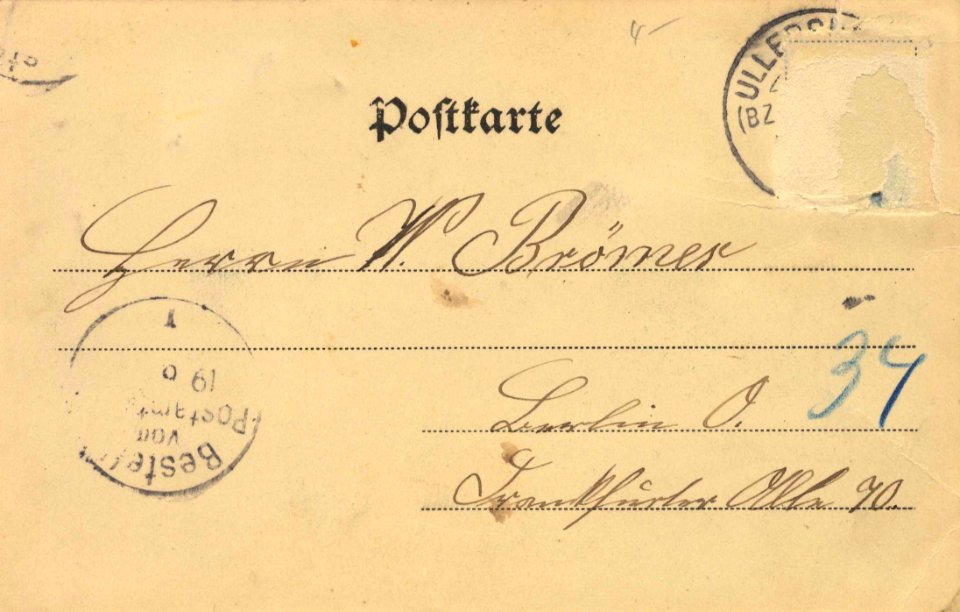 Postkarte
ULLERS
(BZ
Herrn W. Brömer
34
Berlin O.
Frankfurter Alle 70.
Bestel
vom
Postamt
19 6
1